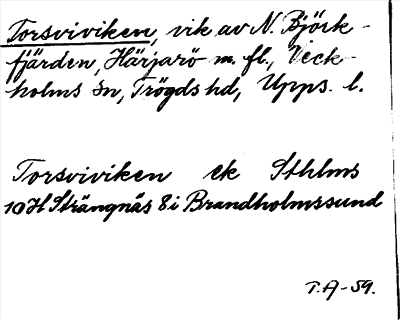 Torsviviken, vik av N. Björk-
fjärden, Härjarö m. fl., Veck-
holms sn, Trögds hd, Upps. l.
Torsviviken ek Sthlms
10H Strängnäs 8i Brandholmssund
T.A-59.